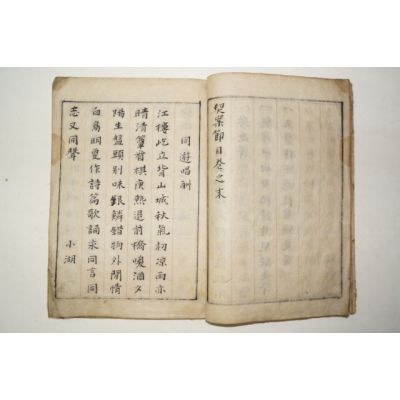 契案節目卷之末
同遊唱酬
江樓屹立背山城秋氣初凉雨亦
晴清簟看棋庚熱退前橋喚酒夕
陽生盤頭別味銀鱗錯物外閒情
白鳥明更作詩篇歌誦同言同
志又同聲
小湖